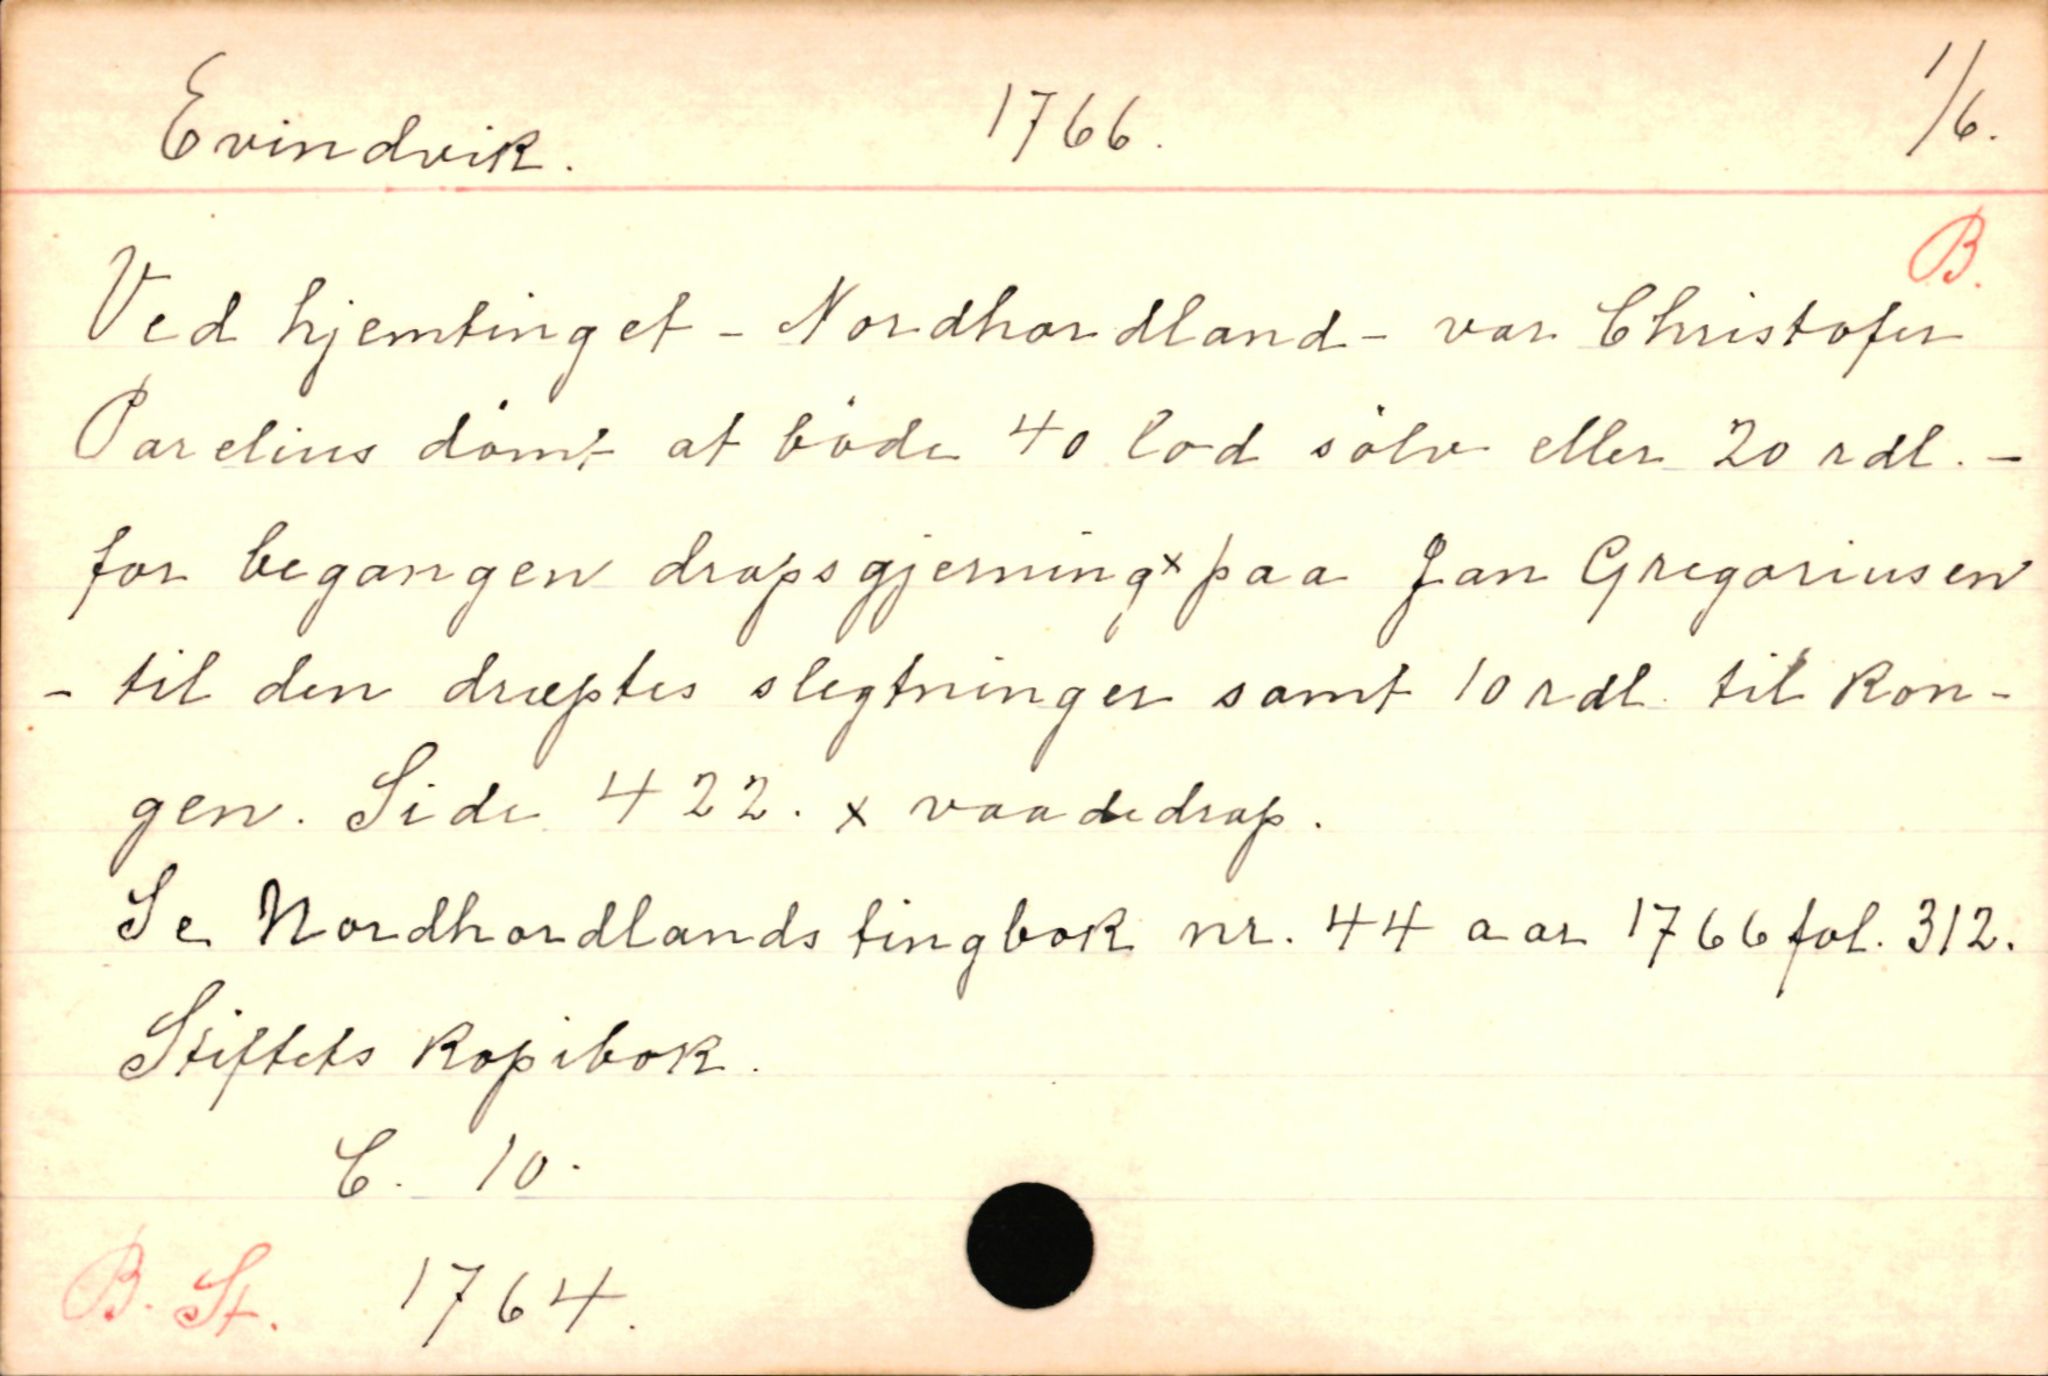 Evindvik. 1766. 1/6.
B.
Ved hjemtinget - Nordhordland - var Christofer
Parelius dömt at böde 40 lod sölv eller 20 rdl. -
for begangen drapsgjerning x paa Jan Gregoriusen
- til den dræptes slegtninger samt 10 rdl. til kon-
gen. Side 422. x vaadedrap.
Se Nordhordlands tingbok nr. 44 aar 1766 fol. 312.
Stiftets kopibok.
C. 10.
B. St. 1764.